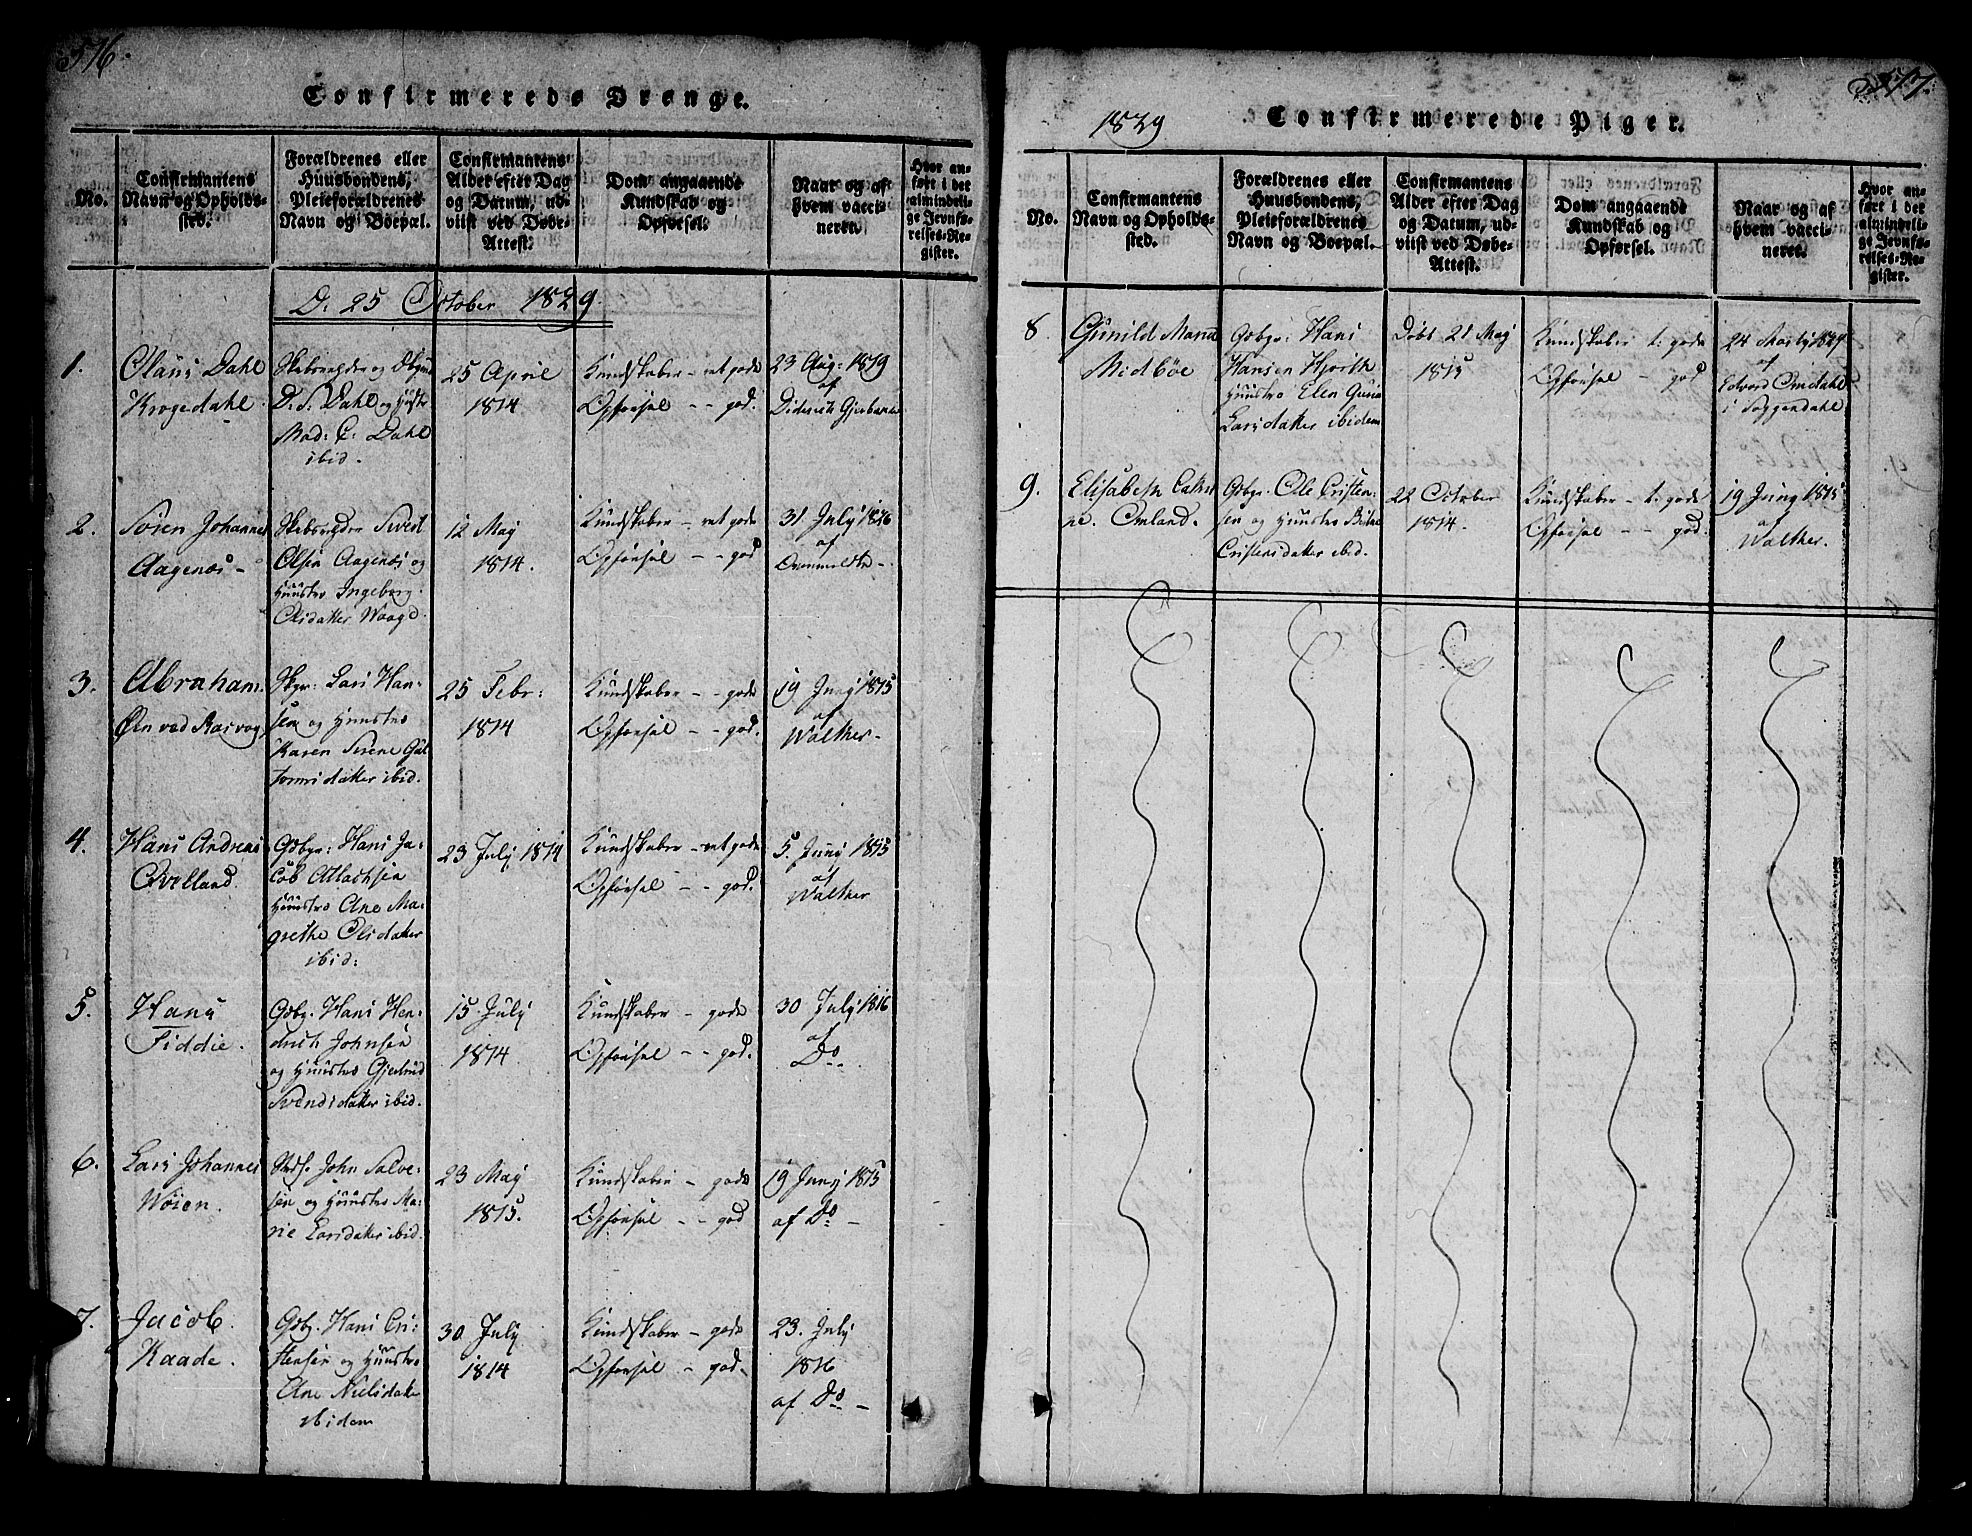 576.
Confirmerede Drenge.
No.
Confirmantens
Navn og Opholds-
sted.
Forældrenes eller
Huusbondens,
Pleieforældrenes
Navn og Boepæl.
Confirmantens
Alder efter Dag
og Datum, ud-
viist ved Døbe-
Attest.
Dom angaaende
Kundskab og
Opførsel.
Naar og af
hvem vacci-
neret.
Hvor an-
ført i det
almindeli-
ge Jevnfø-
relses-Re-
gister.
D. 25 October 1829.
1.
Claus Dahl
Krogedahl.
D. S. Dahl og Hustr
Mad: C: Dahl
ibid.
25 April
1814
Kundskaber - ret gode
Opførsel - - god.
23 Aug: 1819
af
Diderich
2.
Søren Johannes
Aagenæs -
Olsen Aagenæs og
Huustro Ingeborg
Olsdatter Waage
12 May
1814.
Kundskaber - ret gode
Opførsel - - god
31 July 1816
af
3.
Abraham
Øen ved Rasvog
Skpr: Lars Han-
sen og Huustro
Karen Serene Gut-
tormsdatter ibid.
25 Febr:
1814
Kundskaber - - gode
Opførsel - - god.
19 Juny 1815
af
Walther -
4.
Hans Andreas
Qvelland.
Gdbgr: Hans Ja-
cob Atlachsen
Huustro Ane Ma-
grethe Olsdatter
ibid:
23 July 1814
Kundskaber - ret gode
Opførsel - - god.
5. Juny 1815
af
Walther
5.
Hans
Fiddie.
Gdbg. Hans Hen-
drich Johnsen
og Huustro Gjertrud
Svendsdatter ibid.
15 July
1814
Kundskaber - gode
Opførsel - - god.
30 July 1816
af
Do.
6.
Lars Johannes
Woien.
John Salve-
sen og Huustro Ma-
rie Larsdatter ibid.
23 May
1815.
Kundskaber - gode
Opførsel - - god
19 Juny 1815
af Do -
7.
Jacob
Kaade.
Gdbg. Hans Cri-
stensen og Huustro
Ane Nielsdatter
ibidem
30 July
1814
Kundskaber - gode
Opførsel - god.
23. July
1816
af Do -
577.
1829
Confirmerede Piger.
No.
Confirmantens
Navn og Opholds-
sted.
Forældrenes eller
Huusbondens,
Pleieforældrenes
Navn og Boepæl.
Confirmantens
Alder efter Dag
og Datum, ud-
viist ved Døbe-
Attest.
Dom angaaende
Kundskab og
Opførsel.
Naar og af
hvem vacci-
neret.
Hvor an-
ført i det
almindeli-
ge Jevnfø-
relses-Re-
gister.
8.
Gunild Maria
Midbøe
Gdbgr: Hans
Hansen Hjorth
Huustro Elen
Larsdatter ibidem
Døbt 21 May
1815
Kundskaber t: gode
Opførsel - god
24
af
Edvard Omdahl
i Soggendahl
9.
Elisabeth Cathri
ne. Omland.
Gdbgr. Ole Cristen-
sen og Huustro
Cristensdatter ibid.
22 October
1814.
Kundskaber - t: gode
Opførsel - - god.
19 Juny 1815
af
Walther.